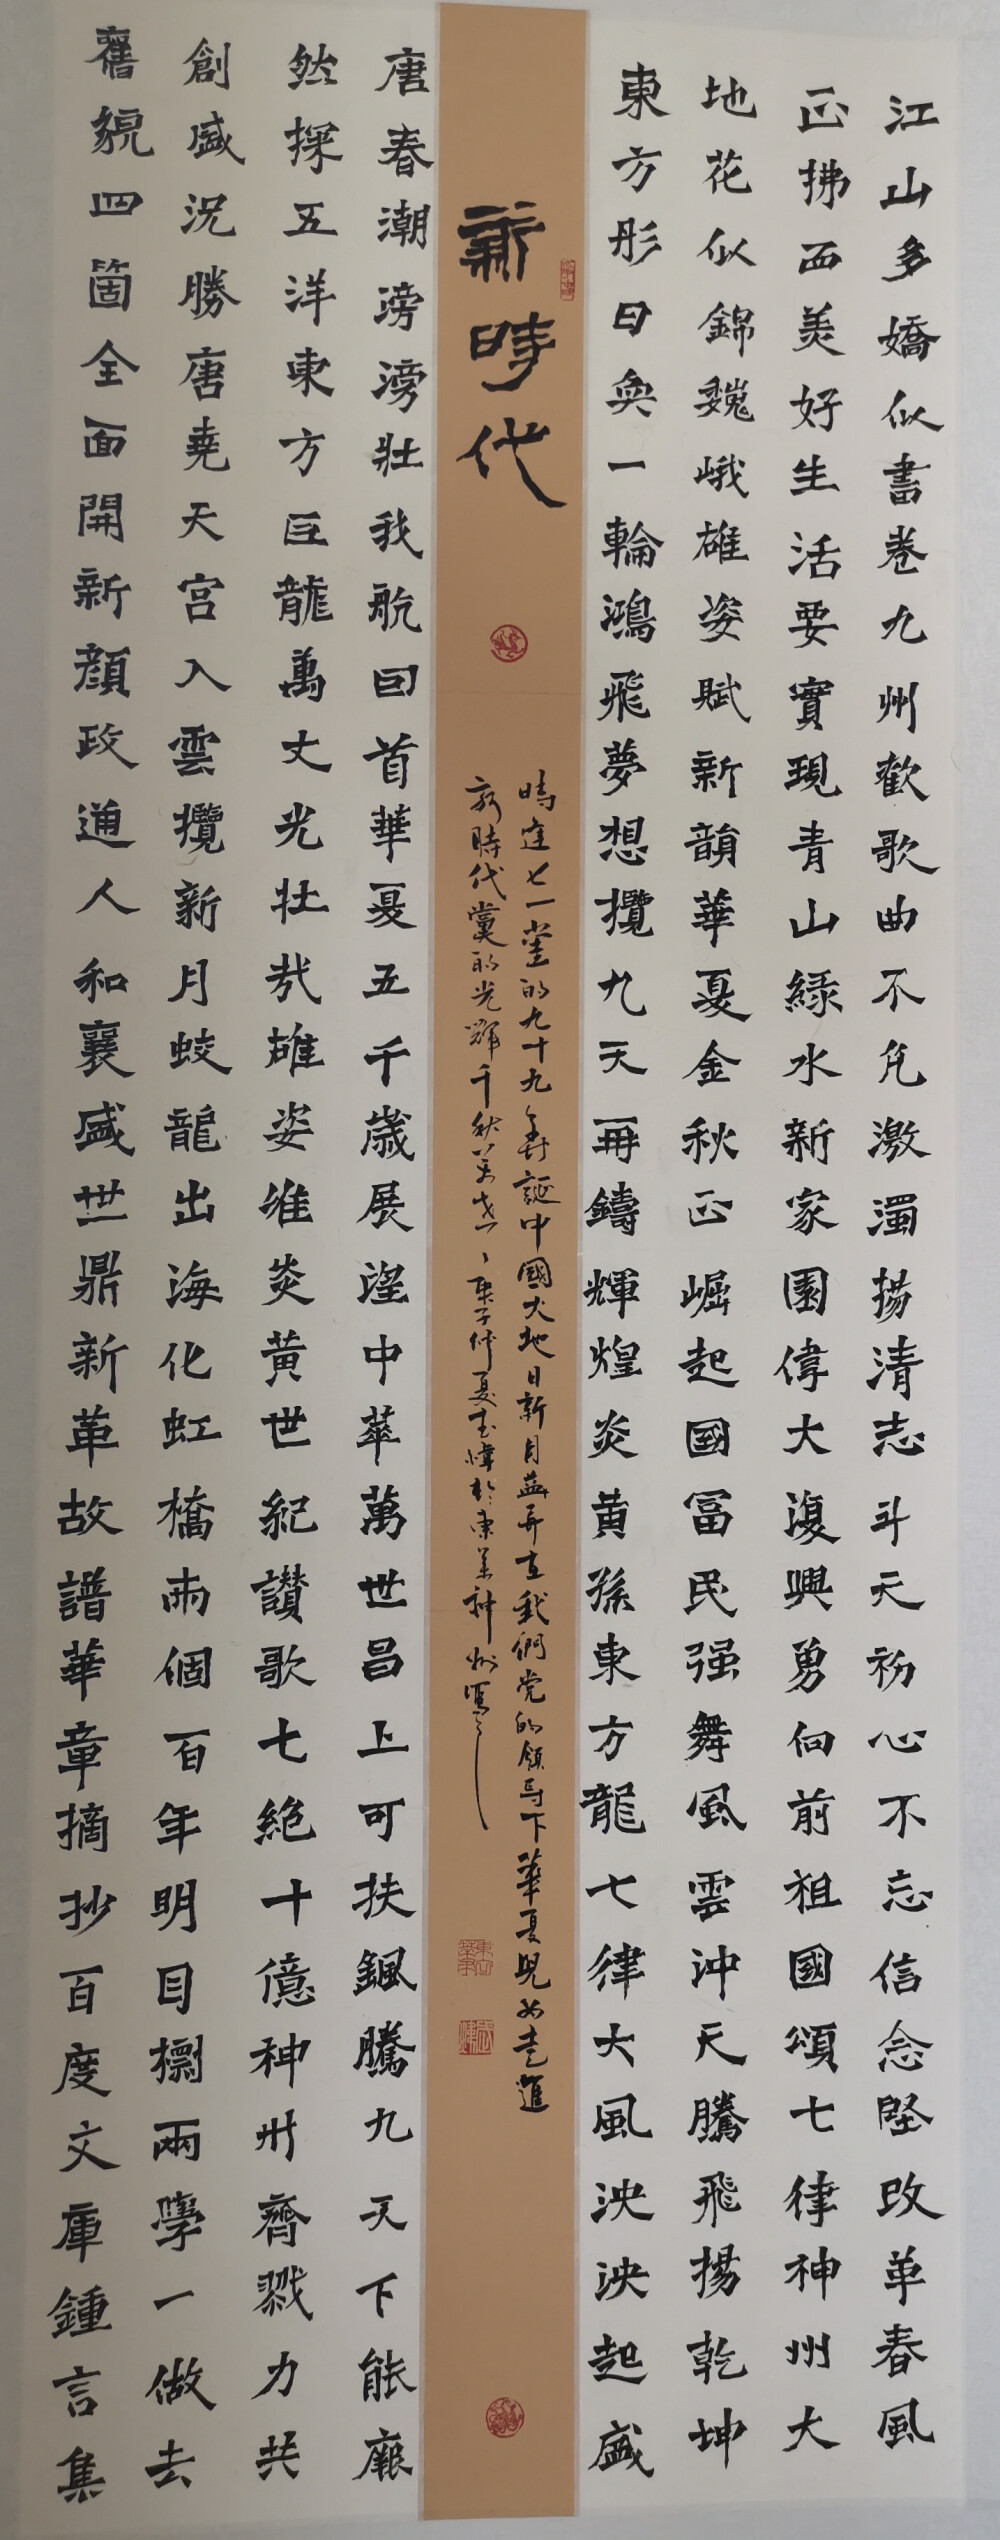 江山多嬌似畫卷九州歡歌曲不凡激濁揚清志斗天初心不忘信念堅改革春風
正拂面美好生活要實現青山綠水新家園偉大復興勇向前祖國頌七律神州大
地花似錦巍峨雄姿賦新韻華夏金秋正崛起國富民强舞風雲沖天騰飛揚乾坤
東方彤日奐一輪鴻飛夢想攬九天再鑄輝煌炎黄孫東方龍七律大風泱泱起盛
新時代
時逢七一黨的九十九年華誕中國大地日新月益並在我們党的領导下華夏兒女走進
新時代黨的光輝千秋萬世庚子仲夏志偉於東萊神州寫
唐春潮滂滂壯我航回首華夏五千歲展望中華萬世昌上可扶颻騰九天下能廠
然探五洋東方巨龍萬丈光壯哉雄姿維炎黄世紀讚歌七絶十億神州齊戮力共
創盛況勝唐堯天宫入雲攬新月蛟龍出海化虹橋兩個百年明目標兩學一做去
舊貌四箇全面開新顔政通人和襄盛世鼎新革故譜華章摘抄百度文庫鍾言集